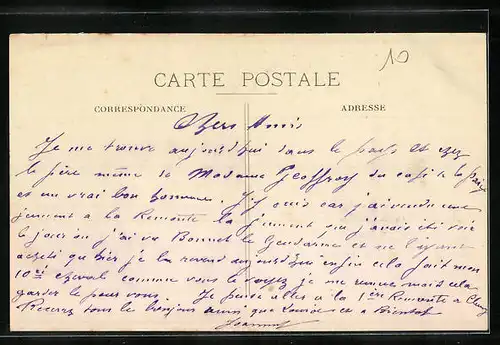 10
CARTE POSTALE
CORRESPONDANCE
ADRESSE
Chers Amis
Je me trouve aujourd'hui dans le pays et chez
le père même de Madame Geoffroy du café de la Paix
et un vrai bon homme. J'y suis car j'ai vendu une
jument a la Remonte la jument que j'avais été voir
le jour où j'ai vu Bonnet le Gendarme et ne l'ayant
acheté que hier je la revend aujourd'hui enfin cela fait mon
10 cheval comme vous le voyez je me remue mais cela
garder le pour vous. Je pense aller a la 1ère Remonte a Cluny
Recevez tous le bonjour ainsi que Louise et a Bientot